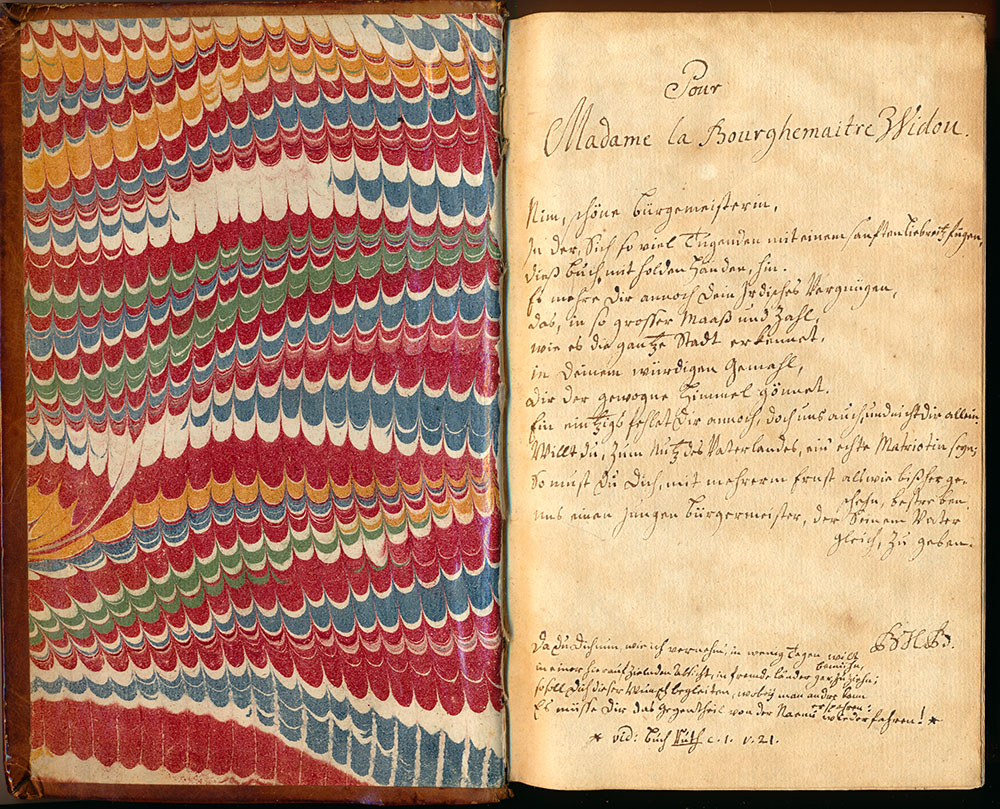 Pour
Madame la Bourghemaitre Widou.
Nim, schöne Bürgemeisterin,
In der, Sich so viel Tugenden mit einem sanften Liebreitz fügen,
dieß Buch, mit holden Händen, hin.
Es mehre Dir annoch Dein Irdisches Vergnügen,
das, in so grosser Maaß und Zahl,
wie es die gantze Stadt erkennet,
in Deinem würdigen Gemahl,
Dir der gewogne Himmel gönnet.
Ein eintzigs fehlet Dir annoch, doch uns auch, und nicht dir allein.
Willt du, zum Nutz des Vaterlandes, ein echte Matriotin seyn;
So must Du Dich, mit mehrerm Ernst als wie bißher ge-
schehn, bestreben,
uns einen Jungen Bürgermeister, der Seinem Vater
gleich, zu geben.
BHB.
Da du Dich nun, wie ich vernehm, in wenig Tagen willt
bemühn,
in einer hierauf zielenden Absicht, in fremde Länder gar zu ziehn;
so soll Dich dieser Wunsch begleiten, wobey man andre kann
Es müsse Dir das Gegentheil von der Naemi wiederfahren! *
* vid: Buch Ruth c. 1. v. 21.